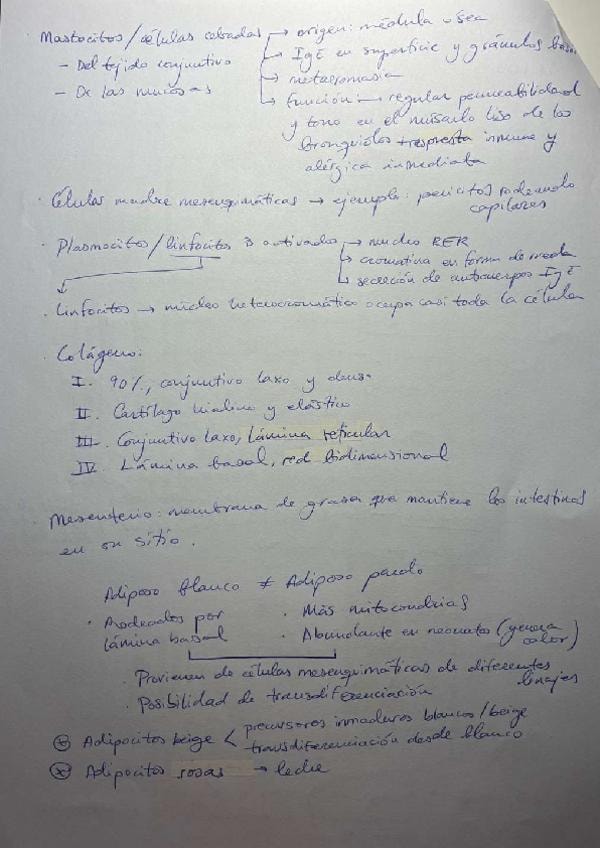 Mastocitos/células cebadas → origen: médula ósea
- Del tejido conjuntivo → IgE en superficie y gránulos
- De las mucosas → metacromasia
→ función → regular permeabilidad
y tono en el músculo liso de los
bronquiolos + respuesta inmune y
alérgica inmediata
· Células madre mesenquimáticas → ejemplo: pericitos rodeando
capilares
· Plasmocitos/linfocitos B activados → nucleo RER
→ cromatina en forma de rueda
→ secreción de anticuerpos IgE
· Linfocitos → núcleo heterocromático ocupa casi toda la célula
· Colágeno:
I. 90%, conjuntivo laxo y denso
II. Cartílago hialino y elástico
III. Conjuntivo laxo, lámina reticular
IV. Lámina basal, red bidimensional
· Mesenterio: membrana de grasa que mantiene los intestinos
en su sitio.
Adiposo blanco ≠ Adiposo pardo
· Rodeados por · Más mitocondrias
lámina basal · Abundante en neonatos (genera
calor)
· Provienen de células mesenquimáticas de diferentes
linajes
· Posibilidad de transdiferenciación
* Adipocitos beige < precursores inmaduros blancos/beige
transdiferenciación desde blanco
* Adipocitos rosas → leche